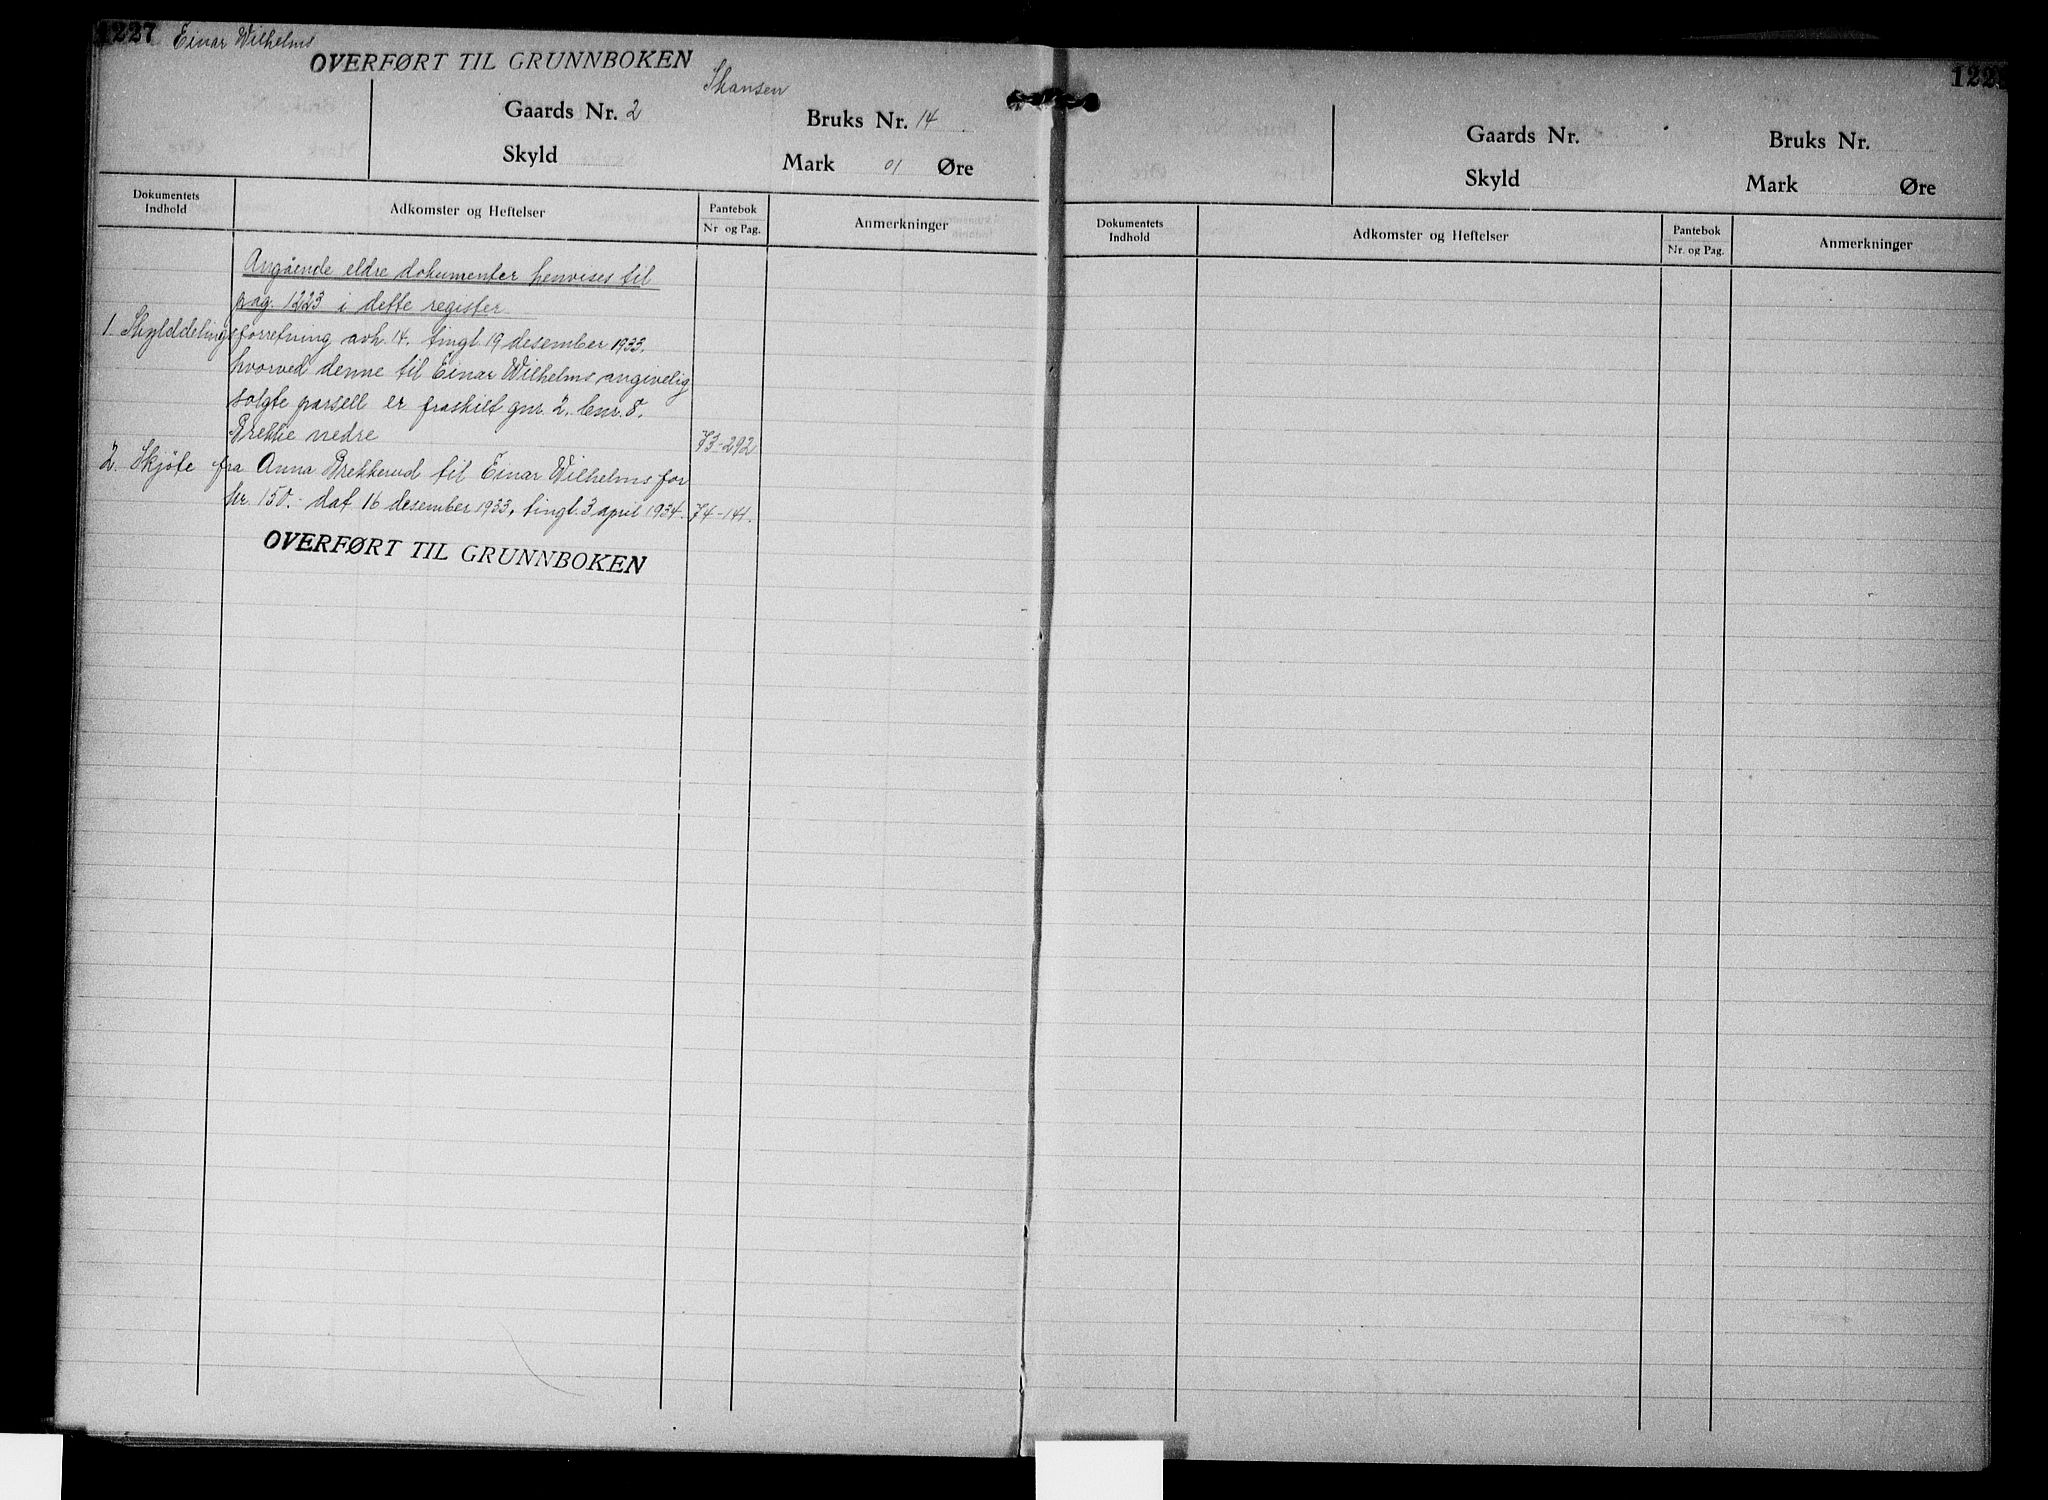 1227 Einar Wilhelms
OVERFØRT TIL GRUNNBOKEN
Skansen
Gaards Nr. 2 Bruks Nr. 14
Skyld Mark 01 Øre
Dokumentets Indhold Adkomster og Heftelser Pantebok Nr og Pag. Anmerkninger
Angående eldre dokumenter henvises til
pag. 1223 i dette register
1. Skylddelingsforretning avh. 14. tingl. 19 desember 1933.
hvorved denne til Einar Wilhelms angivelig
solgte parsell er fraskilt gnr. 2. bnr. 8.
Brekke nedre 73-292
2. Skjöte fra Anna Brekkerud til Einar Wilhelms for
kr. 150.- dat 16 desember 1933, tingl. 3 april 1934. 74-141.
OVERFØRT TIL GRUNNBOKEN
122
Gaards Nr. Bruks Nr.
Skyld Mark Øre
Dokumentets Indhold Adkomster og Heftelser Pantebok Nr. og Pag. Anmerkninger